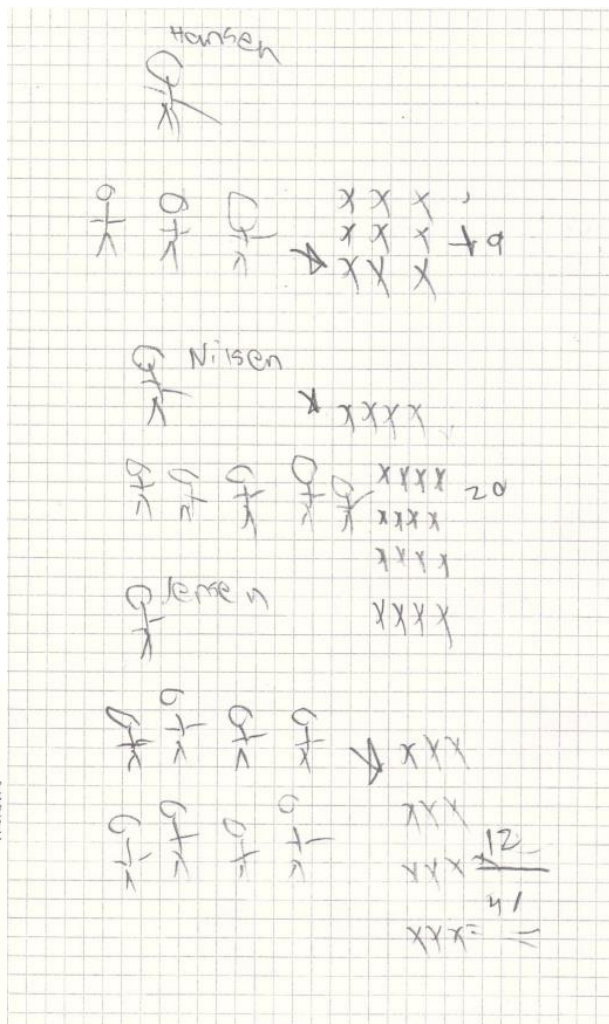 Hansen
X X X
X X X +9
X X X
Nilsen
X X X X
X X X X 20
X X X X
X X X X
Jensen
X X X X
X X X
X X X
X X X 12
41
X X X =